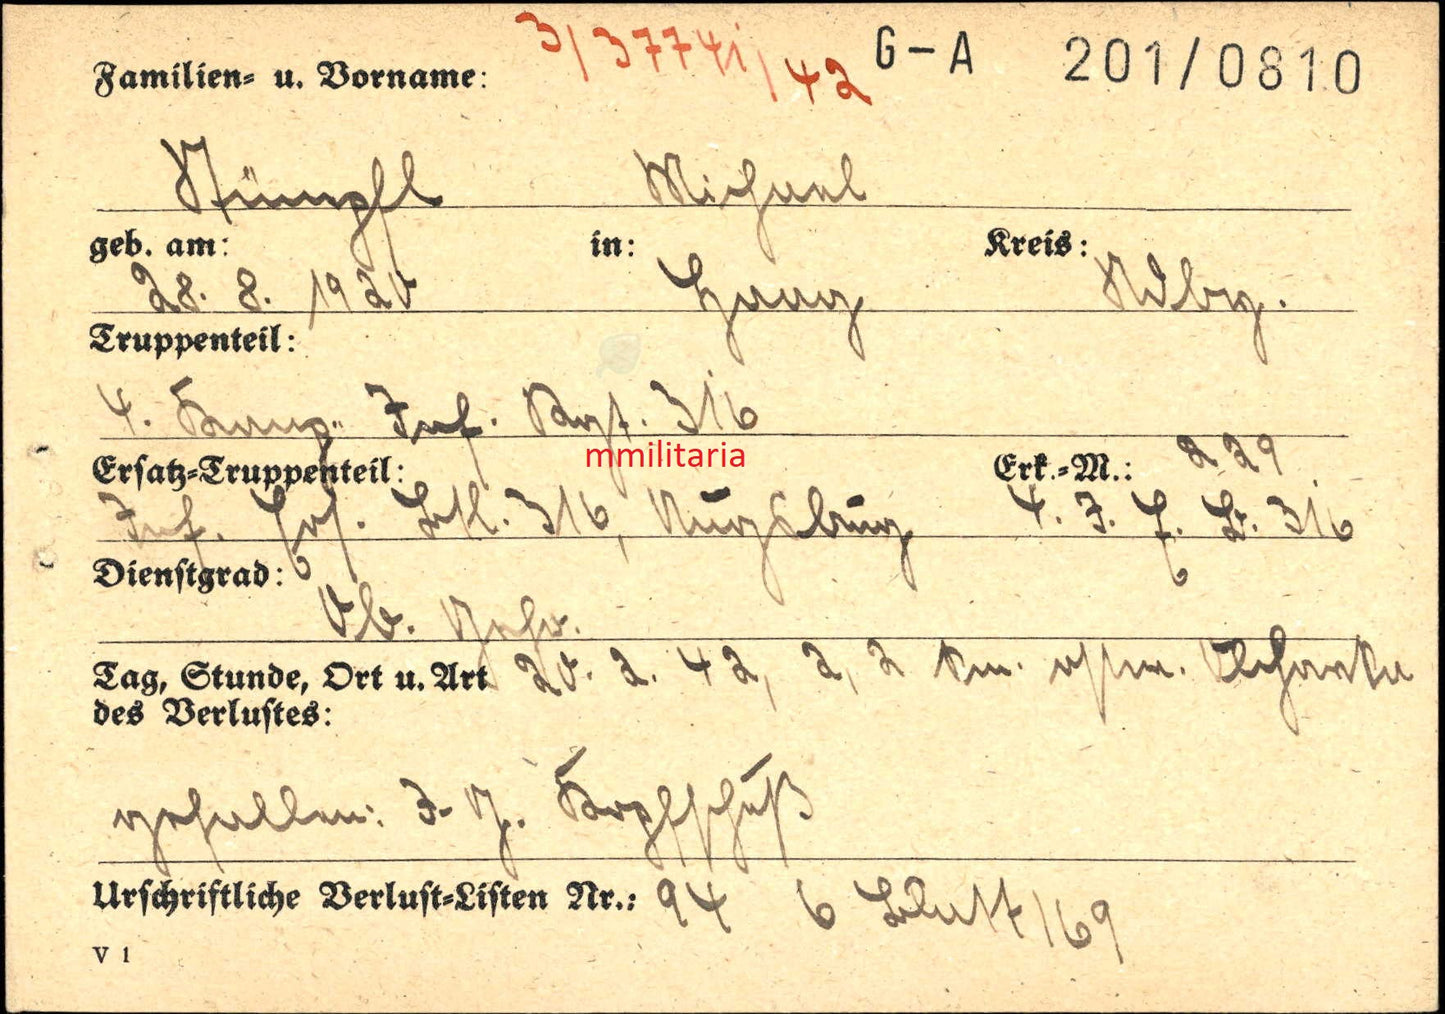 3/3774i/42 G-A 201/0810
Familien= u. Vorname:
Stümpfl Michael
geb. am: in: Kreis:
28. 8. 1920 Haag
Truppenteil:
4. Komp. Inf. Rgt. 316
mmilitaria
Ersatz=Truppenteil: Erk.=M.: 229
Inf. Ers. Btl. 316, Augsburg 4. J. E. B. 316
Dienstgrad:
Ob. Gefr.
Tag, Stunde, Ort u. Art 20. 2. 42, 2,2 km
des Verlustes:
gefallen: I. G. Kopfschuß
Urschriftliche Verlust=Listen Nr.: 94 6 Blatt 169
V 1